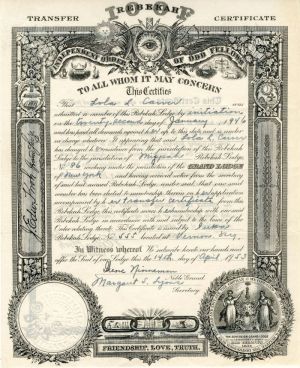 TRANSFER
REBEKAH
CERTIFICATE
INDEPENDENT ORDER OF ODD FELLOWS
TO ALL WHOM IT MAY CONCERN
This Certifies
That Lola L. Carrier was
admitted a member of this Rebekah Lodge by initiation
on the twenty second January 1946
and has paid all demands against her up to this date and is under
no charge whatever. It appearing that said Lola L. Carrier
has changed her from the jurisdiction of this Rebekah
Lodge to the jurisdiction of Rebekah Lodge
No. 86 working under the jurisdiction of the GRAND LODGE
of New York and having received notice from the secretary
of said last named Rebekah Lodge, under seal, that said
member has been elected to membership therein on
accompanied by a transfer certificate from this
Rebekah Lodge, this certificate severs her with this
Rebekah Lodge in accordance with and subject to the laws of the
Order relating thereto. This Certificate is issued by
Rebekah Lodge No. 555 located at Vernon, N.Y.
In Witness whereof We subscribe hereto our hands and
affix the Seal of our Lodge this 14th day of April 1953
Irene
Noble Grand
Margaret S. Lyons
Secretary
FRIENDSHIP, LOVE, TRUTH.
THE SOVEREIGN GRAND LODGE